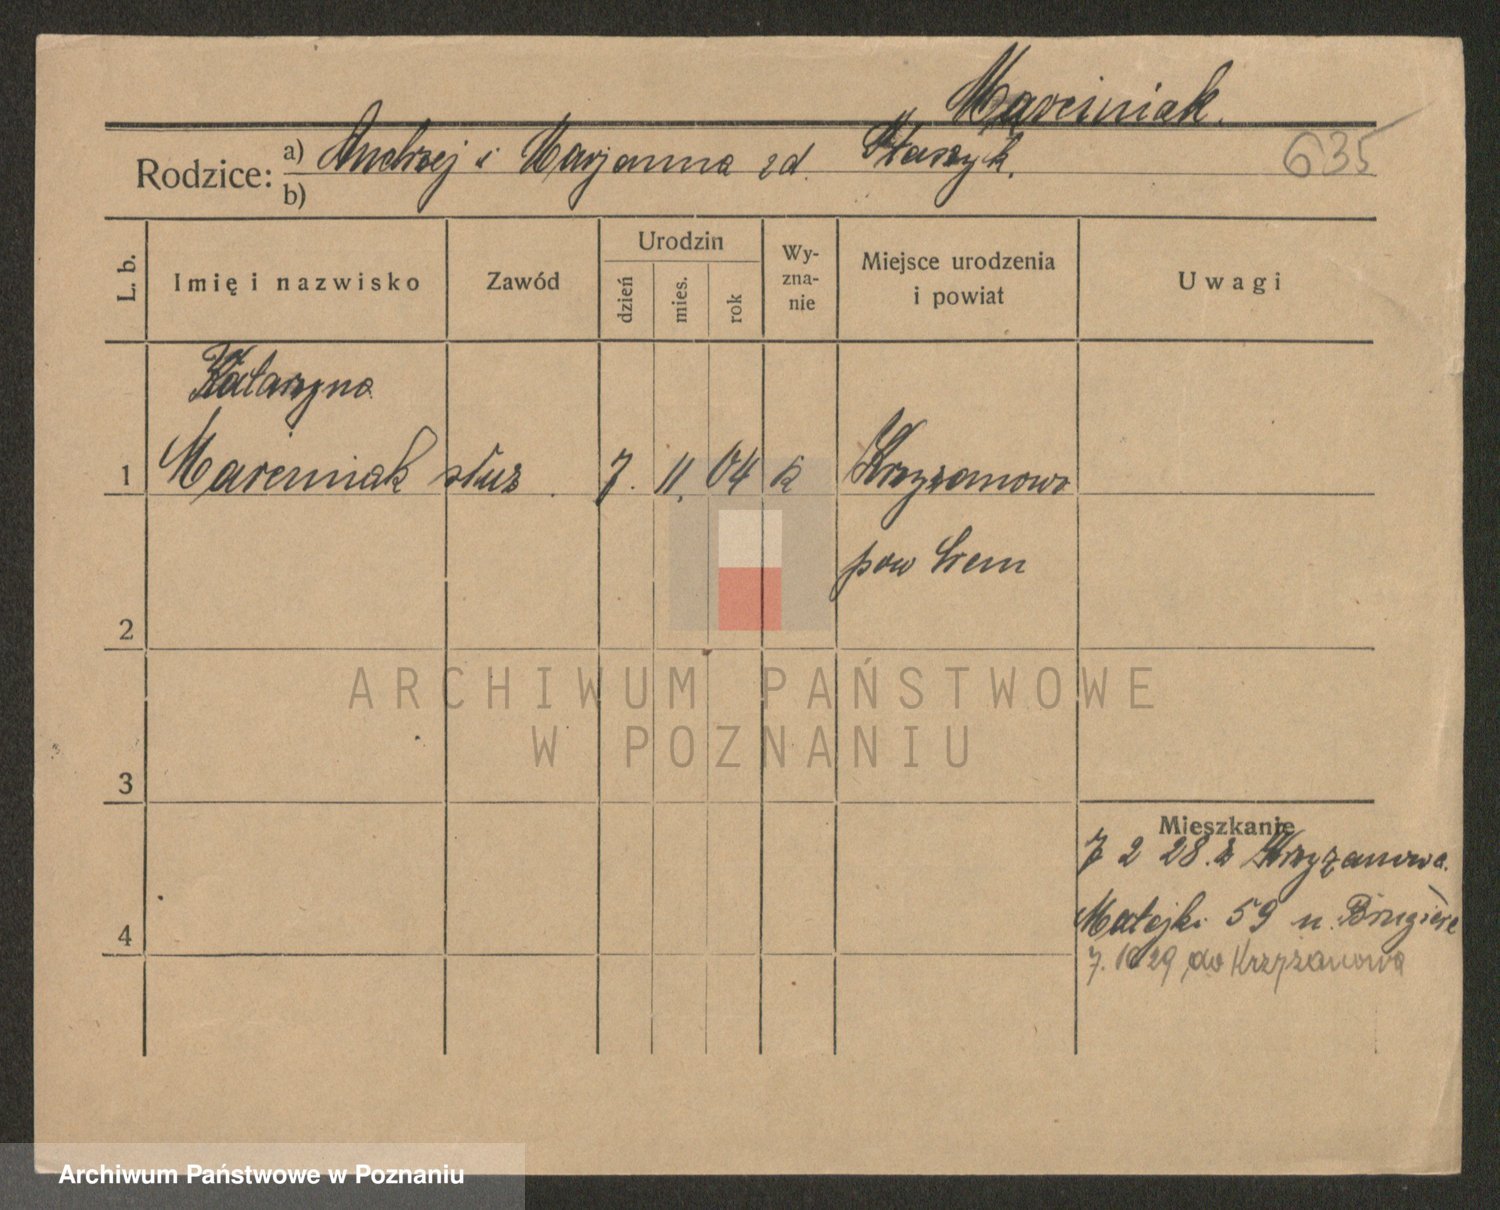 Marciniak.
635
Rodzice: a) Andrzej i Marjanna zd. Ptaszyk.
b)
L. b.
Imię i nazwisko
Zawód
Urodzin
dzień
mies.
rok
Wy-
zna-
nie
Miejsce urodzenia
i powiat
Uwagi
Katarzyna
1 Marciniak służ. 7. 11. 04 k Krzyżanowo
pow Śrem
2
3
4
Mieszkanie
7 2 28. z Krzyżanowa.
Matejki 59 u. Brugiere
7. 10 29 do Krzyżanowa
ARCHIWUM PAŃSTWOWE
W POZNANIU
Archiwum Państwowe w Poznaniu